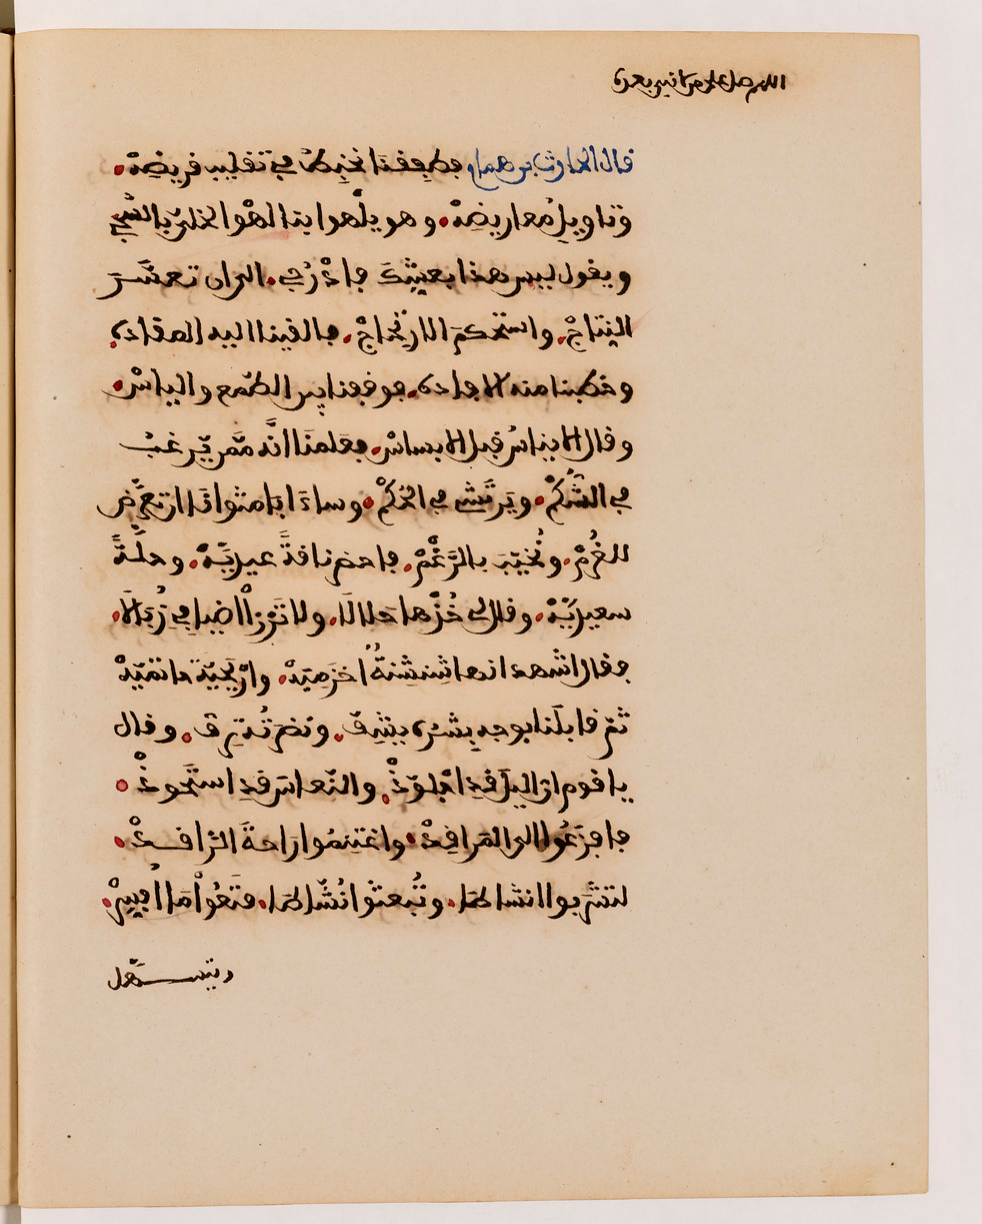 اللهم صل على من لا نبي بعده
قال الحارث بن همام فطفقنا نخبط في تقليب قريضه
وتاويل معاريضه وهو يلهوا بنا لهوا الخلي بالشجي
ويقول ليس هذا بعيشك فادرجي الى ان تعسر
النتاج واستحكم الارتجاج فالقينا اليه المقاده
وخطبنا منه الافاده فوقفنا بين الطمع والياس
وقال الايناس قبل الابساس فعلمنا انه ممن يرغب
في الشكم ويرتشي في الحكم وساء ابا مثوانا ان نتعرض
للغرم ونخيب بالرغم فاحضر ناقة عيدية وحلة
سعيدية وقال لي خذها حلالا ولا ترزا اضيافي زبالا
فقال اشهد انها شنشنة اخزمية واريحية حاتمية
ثم قابلنا بوجه بشره يشف ونضرته ترف وقال
يا قوم ان اليل قد اجلوذ والنعاس قد استحوذ
فافزعوا الى المراقد واغتنموا راحة الراقد
لتشربوا انشاطا وتبعثوا نشاطا فتعوا ما افسر
ويتسهل